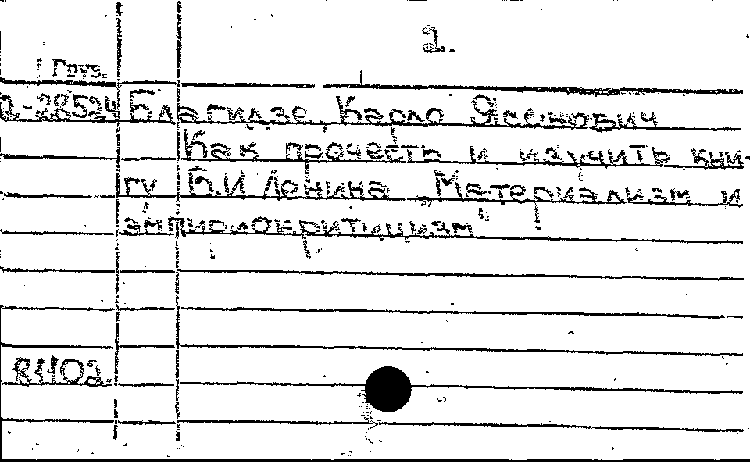 2.
Груз.
2-28524 Благидзе, Карло Ясенович
Как прочесть и изучить кни-
гу В.И Ленина „Материализм и
эмпириокритицизм"
81102.